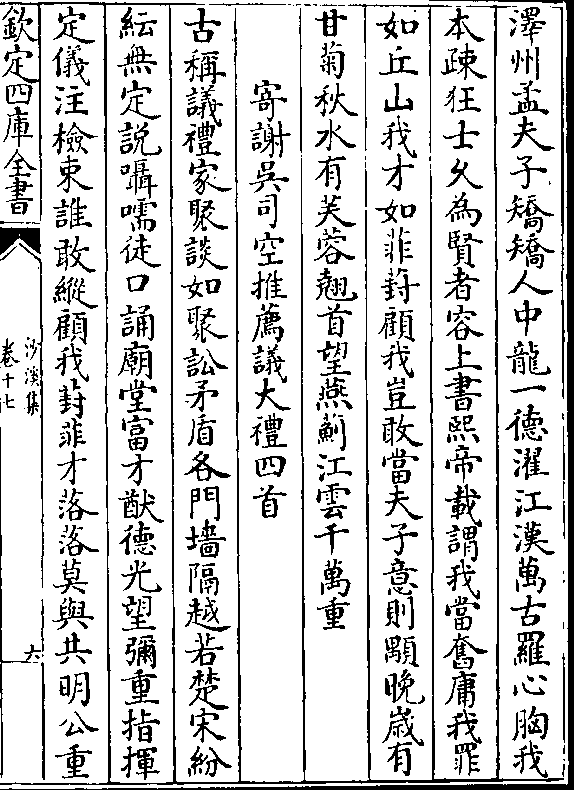 澤州孟夫子矯矯人中龍一德濯江漢萬古羅心胸我
本疎狂士久為賢者容上書熙帝載謂我當奮庸我罪
如丘山我才如菲葑顧我豈敢當夫子意則顒晚歲有
甘菊秋水有芙蓉翹首望燕薊江雲千萬重
寄謝吳司空推薦議大禮四首
古稱議禮家聚談如聚訟矛盾各門墻隔越若楚宋紛
紜無定說囁嚅徒口誦廟堂富才猷德光望彌重指揮
定儀注檢束誰敢縱顧我葑菲才落落莫與共明公重
欽定四庫全書
沙溪集
卷十七
六